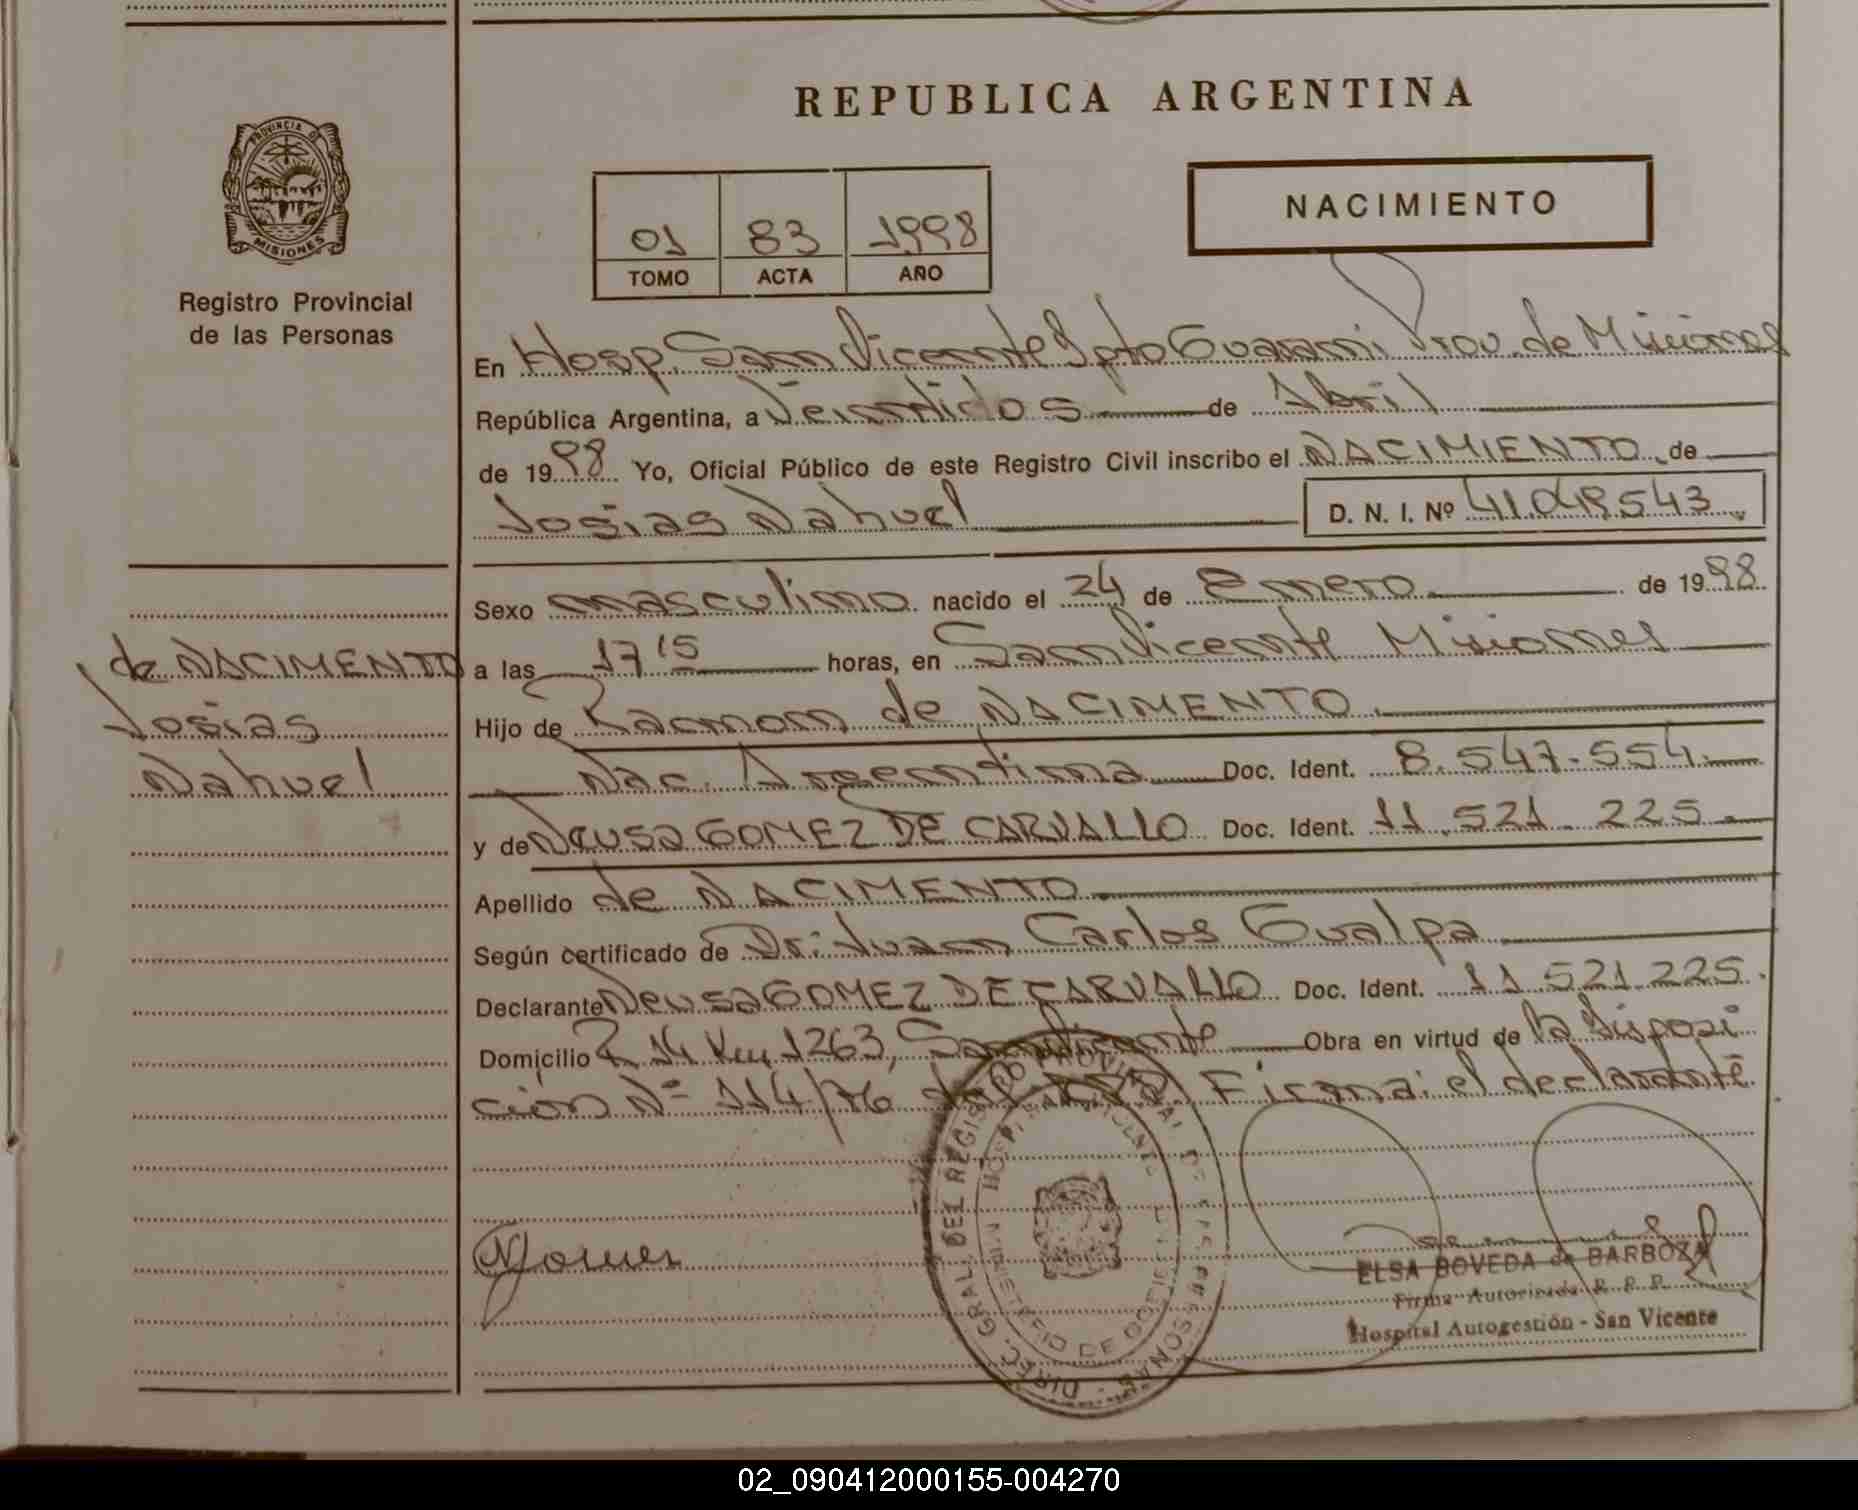 REPUBLICA ARGENTINA
PROVINCIA DE MISIONES
Registro Provincial
de las Personas
01 83 1998
TOMO ACTA AÑO
NACIMIENTO
En Hosp. San Vicente Dpto Guarani Prov. de Misiones
República Argentina, a Veintidos de Abril
de 1998 Yo, Oficial Público de este Registro Civil inscribo el NACIMIENTO de
Josias Nahuel D. N. I. Nº 41.048.543
Sexo masculino nacido el 24 de Enero de 1998
a las 17 15 horas, en San Vicente Misiones
Hijo de Ramon de NACIMENTO
Nac. Argentina Doc. Ident. 8.547.554
y de Neusa GOMEZ DE CARVALLO Doc. Ident. 11.521.225
Apellido de NACIMENTO
Según certificado de Dr. Juan Carlos Gualpa
Declarante Neusa GOMEZ DE CARVALLO Doc. Ident. 11 521.225
Domicilio R 14 Km 1263, San Vicente Obra en virtud de la Disposi
ción Nº 114/76 del Firma: el declarante
de NACIMENTO
Josias
Nahuel
DIREC. GRAL. DEL REGISTRO PROVINCIAL DE LAS PERSONAS
ELSA BOVEDA de BARBOZA
Firma Autorizada R. P. P.
Hospital Autogestión - San Vicente
02_090412000155-004270